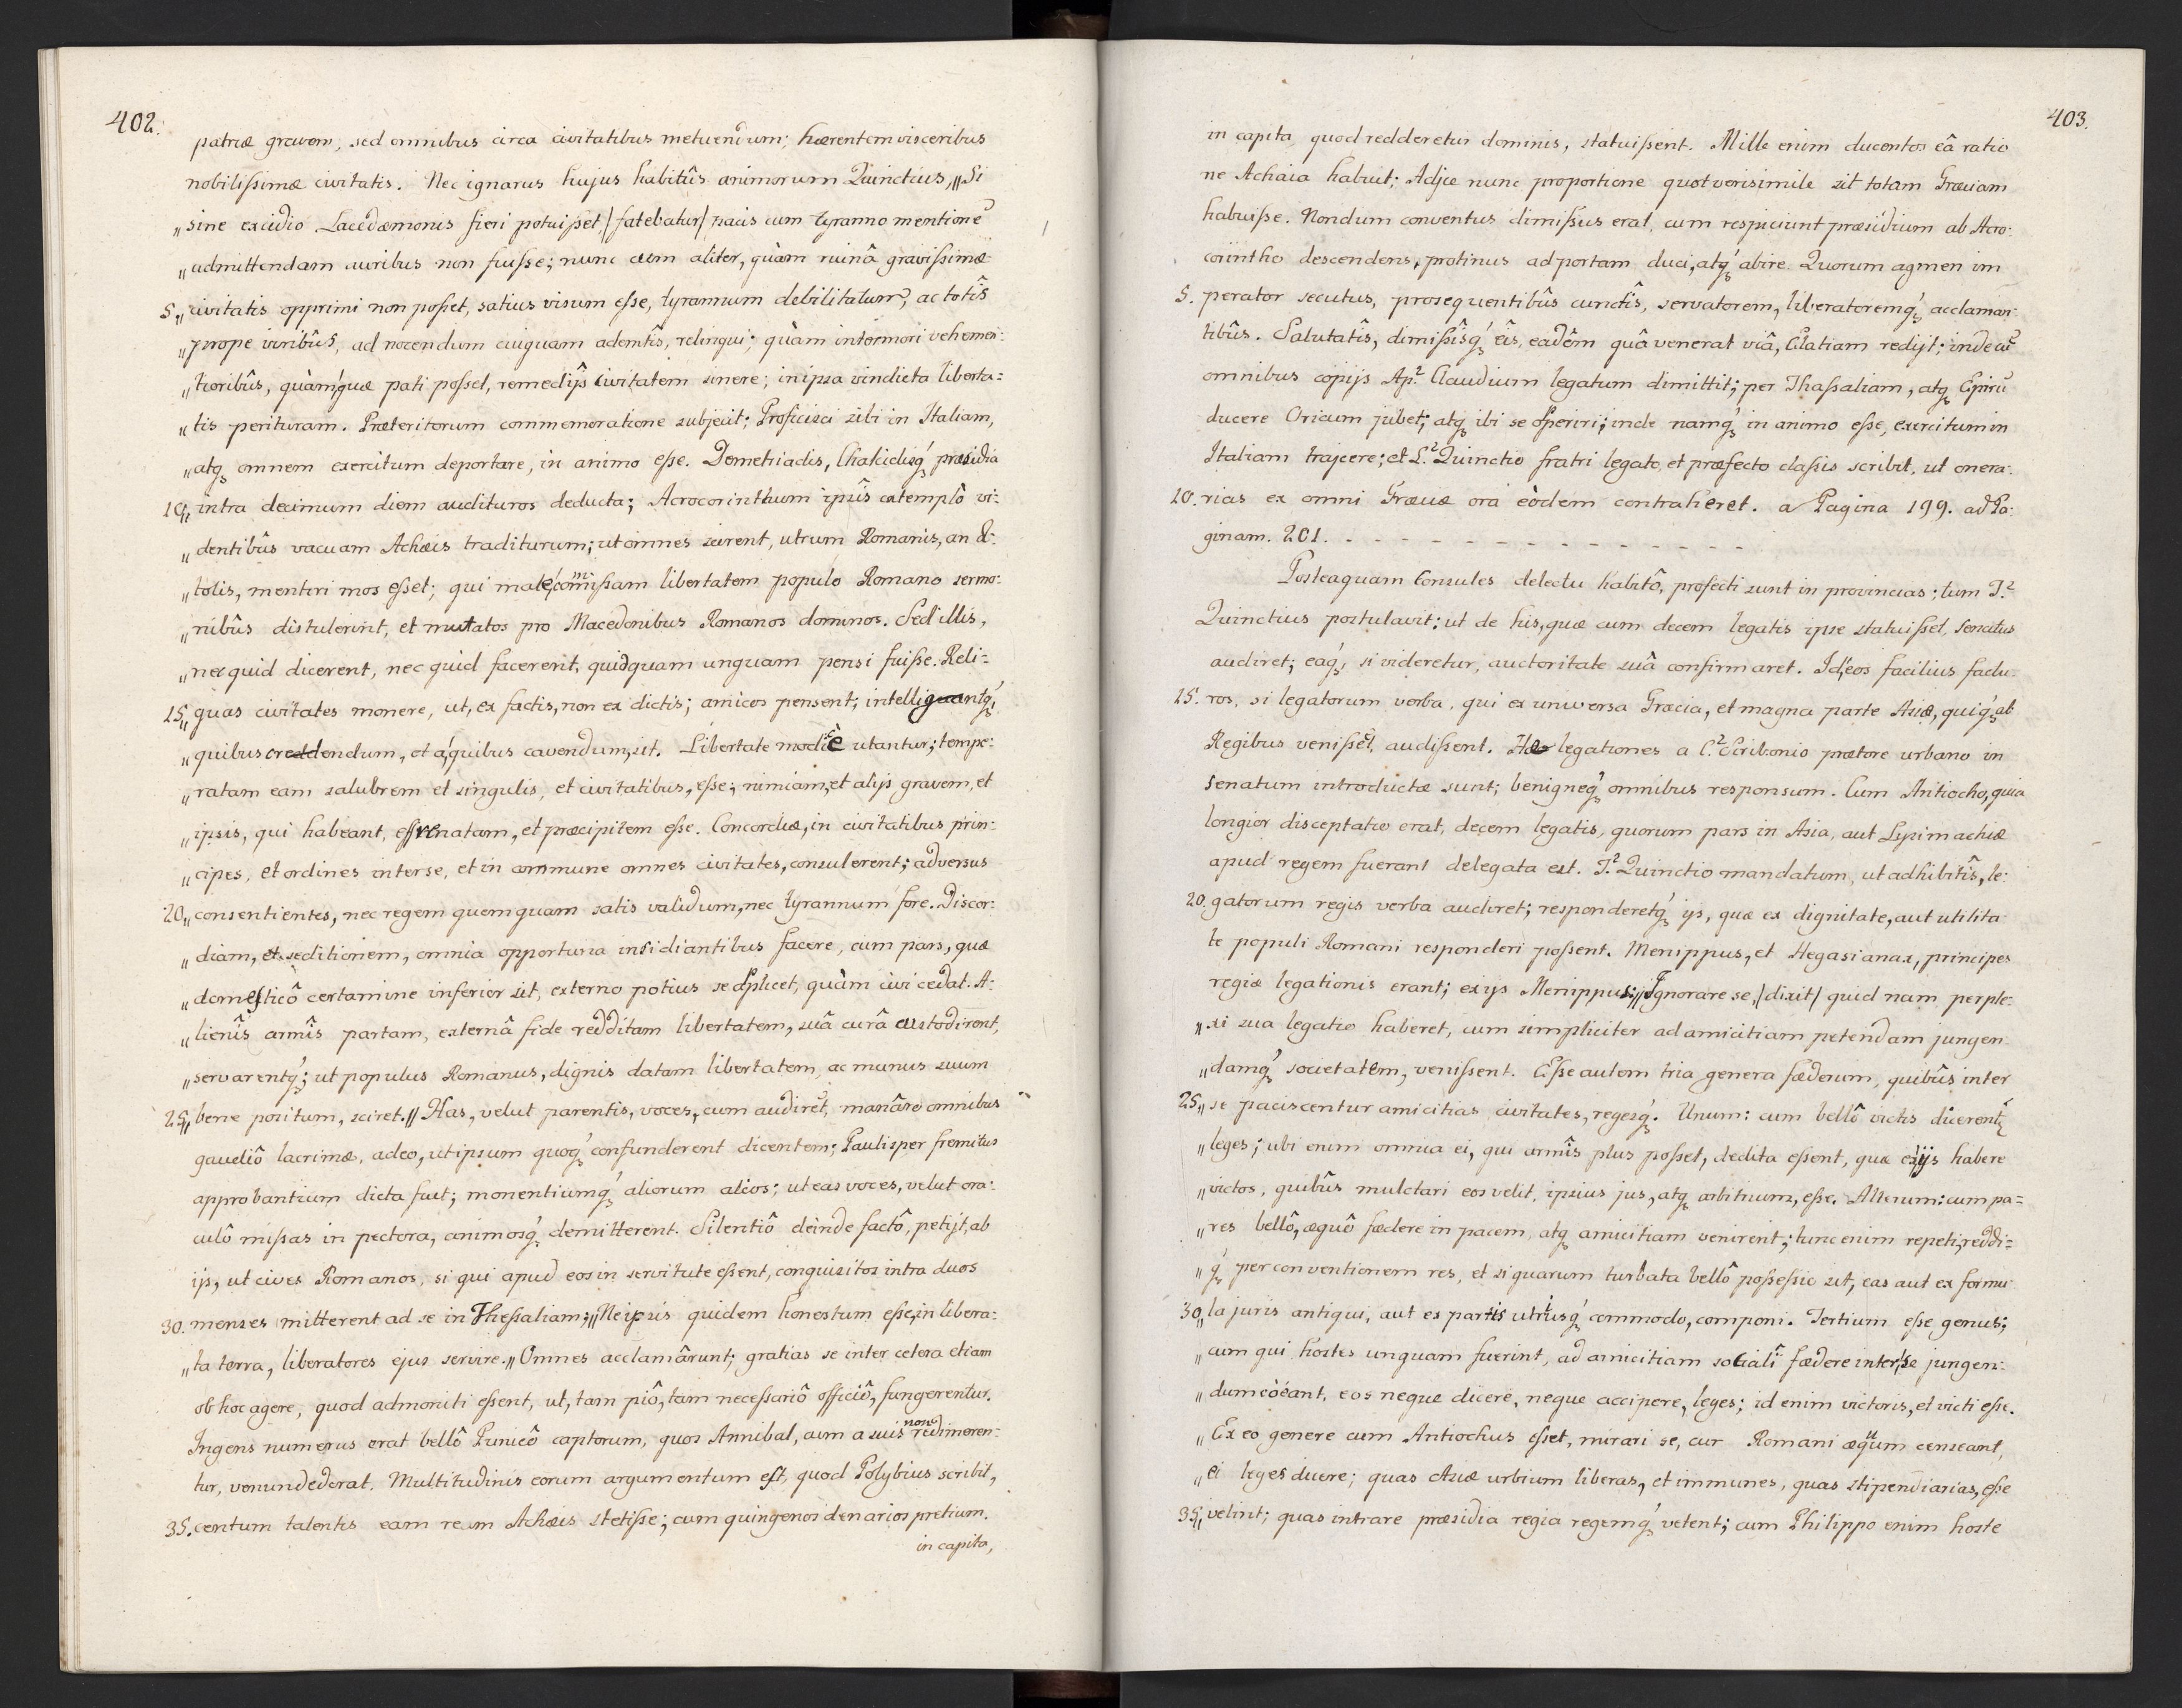 402.
patriæ gravem, sed omnibus circa civitatibus metuendum; hærentem visceribus
nobilissimæ civitatis. Nec ignarus hujus habitûs animorum Quinctius, „Si
„sine excidio Lacedæmonis fieri potuisset /fatebatur/ pacis cum tyranno mentionē
„admittendam auribus non fuisse; nunc cum aliter, quàm ruinâ gravissimæ
5. „civitatis opprimi non posset, satius visum esse, tyrannum debilitatum, ac totîs
„prope viribûs, ad nocendum cuiquam ademtîs, relinqui; quàm intermori vehemen:
„tioribûs, quàm quæ pati posset, remedijs civitatem sinere; in ipsa vindicta liberta=
„tis perituram. Præteritorum commemoratione subjecit; Proficisci sibi in Italiam,
„atq; omnem exercitum deportare, in animo esse. Demetriadis, Chalcidisq; præsidia
10. „intra decimum diem audituros deducta; Acrocorinthum ipsîs extemplò vi:
„dentibûs vacuam Achæis traditurum; ut omnes scirent, utrum Romanis, an Æ:
„tolis, mentiri mos esset; qui malè com̄issam libertatem populo Romano sermo:
„nibûs distulerint, et mutatos pro Macedonibus Romanos dominos. Sed illis,
„nec quid dicerent, nec quid facerent, quidquam unquam pensi fuisse. Reli=
15. „quas civitates monere, ut, ex factis, non ex dictis; amicos pensent; intelligantq;
„quibus credendum, et a quibus cavendum, sit. Libertate modicè utantur; tempe:
„ratam eam salubrem et singulis, et civitatibus, esse; nimiam, et alijs gravem, et
„ipsis, qui habeant, effrenatam, et præcipitem esse. Concordiæ, in civitatibus prin:
„cipes, et ordines inter se, et in commune omnes civitates, consulerent; adversus
20. „consentientes, nec regem quemquam satis validum, nec tyrannum fore. Discor:
„diam, et seditionem, omnia opportuna insidiantibus facere, cum pars, quæ
„domesticô certamine inferior sit, externo potius se applicet, quàm civi cedat. A:
„lienîs armîs partam, externâ fide redditam libertatem, suâ curâ custodirent,
„servarentq; ut populus Romanus, dignis datam libertatem, ac munus suum
25. „bene positum, sciret.„ Has, velut parentis, voces, cum audirēt, manâre omnibus
gaudiô lacrimæ, adeo, ut ipsum quoq; confunderent dicentem; Paulisper fremitus
approbantium dicta fuit; monentiumq; aliorum alios; ut eas voces, velut ora:
culô missas in pectora, animosq; demitterent. Silentiô deinde factô, petijt, ab
ijs, ut cives Romanos, si qui apud eos in servitute essent, conquisitos intra duos
30. menses mitterent ad se in Thessaliam; „Ne ipsis quidem honestum esse, in libera:
„ta terra, liberatores ejus servire.„ Omnes acclamârunt; gratias se inter cetera etiam
ob hoc agere, quod admoniti essent, ut, tam piô, tam necessariô officiô, fungerentur.
Ingens numerus erat bellô Punicô captorum, quos Annibal, cum a suis non redimeren:
tur, venundederat. Multitudinis eorum argumentum est, quod Polybius scribit,
35. centum talentis eam rem Achæis stetisse; cum quingenos denarios pretium.
in capita,
403.
in capita quod redderetur dominis, statuissent. Mille enim ducentos eâ ratio
ne Achaia habuit; Adjce nunc proportione quot verisimile sit totam Græciam
habuisse. Nondum conventus dimissus erat, cum respiciunt præsidium ab Acro:
corintho descendens, protinus ad portam duci, atq; abire. Quorum agmen im
5. perator secutus, prosequentibûs cunctîs, servatorem, liberatoremq; acclaman:
tibûs. Salutatîs, dimissîsq; eîs, eadêm quâ venerat viâ, Elatiam redijt; inde cū
omnibus copijs Ap.² Claudium legatum dimittit; per Thassaliam, atq; Epirū
ducere Oricum jubet; atq; ibi se opperiri; inde namq; in animo esse, exercitum in
Italiam trajcere; et L.² Quinctio fratri legato, et præfecto classis scribit, ut onera:
10. rias ex omni Græciæ ora eòdem contraheret. a Pagina 199. ad Pa:
ginam. 201. - - - - - - - - - - - - - - - -
Posteaquam Consules delectu habitô, profecti sunt in provincias; tum T.²
Quinctius postulavit: ut de his, quæ cum decem legatis ipse statuisset, senatus
audiret; eaq; si videretur, auctoritate suâ confirmaret. Id, eos facilius factu:
15. ros, si legatorum verba, qui ex universa Græcia, et magna parte Asiæ, quiq; ab
Regibus venissēt, audissent. Hæ legationes a C.² Scribonio prætore urbano in
senatum introductæ sunt; benigneq; omnibus responsum. Cum Antiocho, quia
longior disceptatio erat, decem legatis, quorum pars in Asia, aut Lysimachiæ
apud regem fuerant delegata est. T.² Quinctio mandatum, ut adhibitîs, le:
20. gatorum regis verba audiret; responderetq; ijs, quæ ex dignitate, aut utilita
te populi Romani responderi possent. Menippus, et Hegasianax, principes
regiæ legationis erant; ex ijs Menippus: „Ignorare se, /dixit/ quid nam perple:
„xi sua legatio haberet, cum simpliciter ad amicitiam petendam jungen
„damq; societatem, venissent. Esse autem tria genera fœderum, quibûs inter
25. „se paciscentur amicitias civitates, regesq;. Unum: cum bellô victis dicerentr
„leges; ubi enim omnia ei, qui armîs plus posset, dedita essent, quæ ex ijs habere
„victos, quibûs mulctari eos velit, ipsius jus, atq; arbitrium, esse. Alterum: cum pa=
„res bellô, æquô fœdere in pacem, atq; amicitiam venirent; tunc enim repeti, reddi=
„q; per conventionem res, et si quarum turbata bellô possessio sit, eas aut ex formu
30. „la juris antiqui, aut ex partis utriusq; commodo, componi. Tertium esse genus;
„cum qui hostes unquam fuerint, ad amicitiam socialî fœdere inter se jungen:
„dum coëant, eos neque dicere, neque accipere, leges; id enim victoris, et victi esse.
„Ex eo genere cum Antiochus esset, mirari se, cur Romani æquum censeant,
„ei leges dicere; quas Asiæ urbium liberas, et immunes, quas stipendiarias, esse
35. „velint; quas intrare præsidia regia regemq; vetent; cum Philippo enim hoste